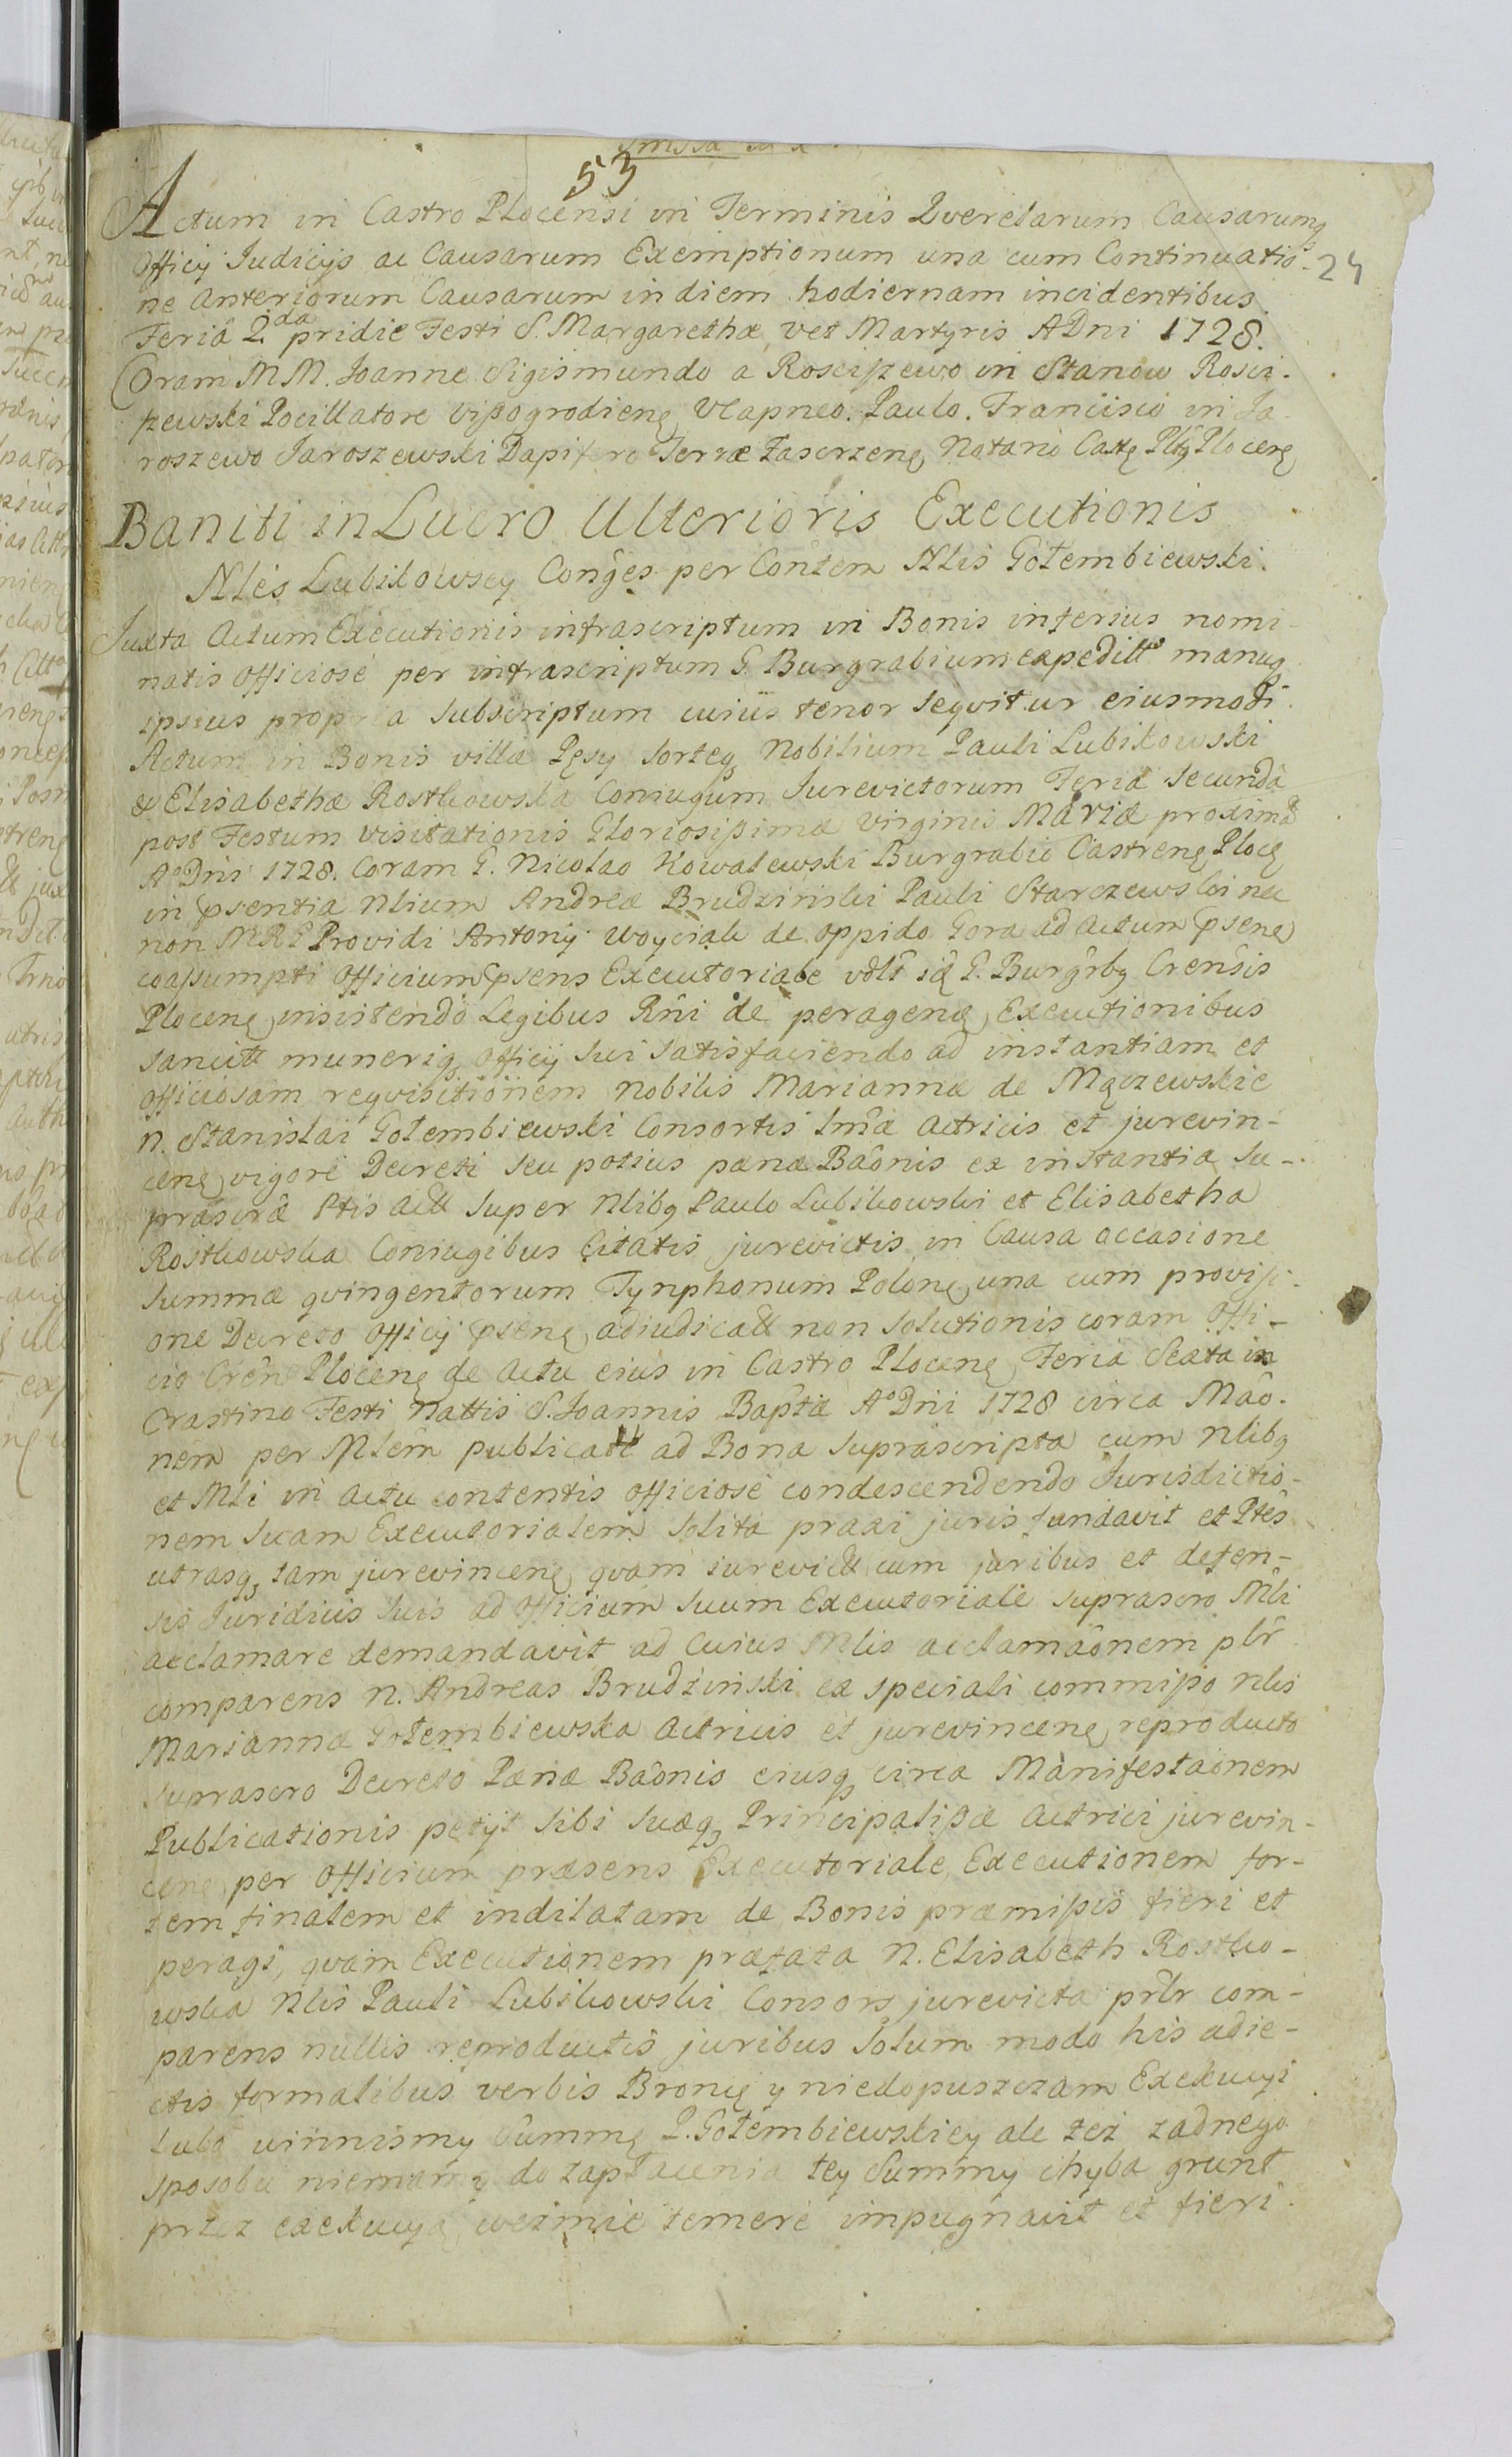 53
Actum in Castro Plocensi in Terminis Qverelarum Causarumq
Officij Iudicijs ac Causarum Exemptionum una cum Continuatio-
24
ne anteriorum Causarum in diem hodiernam incidentibus
Feriâ 2da pridie Festi S. Margarethæ vet Martyris ADni 1728.
Coram MM. Joanne Sigismundo a Rosciszewo in Stanow Rosci-
szewski Pocillatore Vißogrodieng Vcapneo. Paulo. Francisco in Ja
roszewo Jaroszewski Dapifero Terræ Zascrzeng Notario Castg Pltg Ploceng
Baniti in Lucro Ulterioris Executionis
Nles Lubikowscy Conges per Contem Nlis Gołembiewski.
Juxta Actum Executionis infrascriptum in Bonis inferius nomi-
natis officiosé per infrascriptum G. Burgrabium expeditt manuq
ipsius propria subscriptum cuius tenor seqvitur eiusmodi.
Actum in Bonis villa Pęsy Sorteq Nobilium Pauli Lubikowski
& Elisabethæ Rostkowska Coniugum Jurevictorum Feria Secundâ
post Festum visitationis Gloriosißimæ Virginis Mariæ proximâ
AoDni 1728. Coram G. Nicolao Kowalewski Burgrabio Castreng Plocg
in psentia Nlium Andreæ Brudzinski Pauli Starczewski nec
non M R G Providi Antonij Woyciak de oppido Gora ad actum pseng
coassumpti Officium psens Executoriale vdlt sic G. Burgrbg Crensis
Ploceng insistendô Legibus Rni de perageng Executionibus
sancitt munerig officij sui satisfaciendo ad instantiam et
officiosam reqvisitionem Nobilis Mariannæ de Mączewskie
N. Stanislai Gołembiewski Consortis lmæ actricis et jurevin-
ceng vigore Decreti seu potius pænæ Bâonis ex instantia su-
prascræ Ptis Actt super Nlibg Paulo Lubikowski et Elisabetha
Rostkowska Coniugibus Citatis jurevictis in Causa occasione
summæ qvingentorum Tynphonum Polong una cum provisi-
one Decreto officij pseng adiudicatt non solutionis coram Offi-
cio Cren Ploceng de actu eius in Castro Ploceng Feria Sexta in
Crastino Festi Nattis S. Joannis Baptæ AoDni 1728 circa Mâo-
nem per Mlem publicatt ad Bona suprascripta cum Nlibg
et Mli in actu contentis officiosé condescendendo Jurisdictio-
nem suam Executorialem solita praxi juris fundavit et Ptes
utrasq tam jurevinceng qvam jurevictt cum juribus et defen-
sis Juridicis suis ad officium suum Executoriale suprascro Mli
acclamare demandavit ad cuius Mlis acclamâonem plr
comparens N. Andreas Brudzinski ex speciali commißo Nlis
Mariannæ Gołembiewska Actricis et jurevinceng reproducto
suprascro Decreto Pænæ Bâonis eiusq circa Manifestaônem
Publicationis petijt sibi suæq Principalißæ Actrici jurevin-
ceng per Officium præsens Executoriale Executionem for-
tem finalem et indilatam de Bonis præmißis fieri et
peragi, qvam Executionem præfata N. Elisabeth Rostko-
wska Nlis Pauli Lubikowski Consors jurevicta prlr com-
parens nullis reproductis juribus solum modo his adie-
ctis formalibus verbis Bronię y niedopuszczam Exekucyi
lubo winnismy summę P. Gołembiewskiey ale tez zadnego
sposobu niemamy do zapłacenia tey Summy chyba grunt
przez exekucyą wezmie temeré impugnavit et fieri